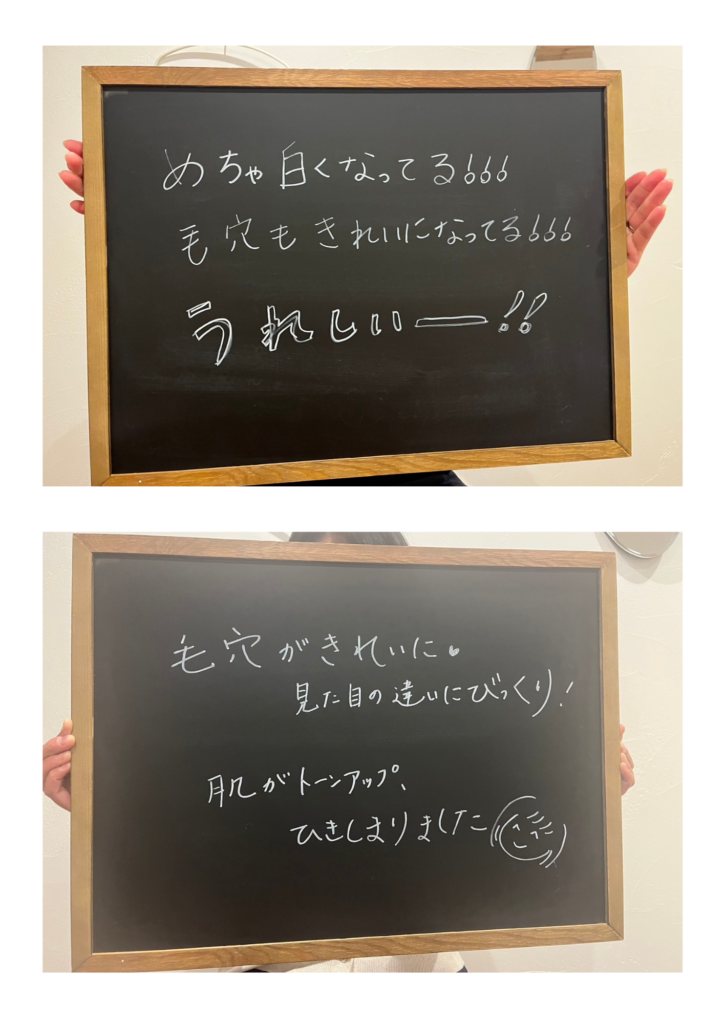 めちゃ白くなってる!!!
毛穴もきれいになってる!!!
うれしいー!!
毛穴がきれいに♥
見た目の違いにびっくり!
肌がトーンアップ、
ひきしまりました